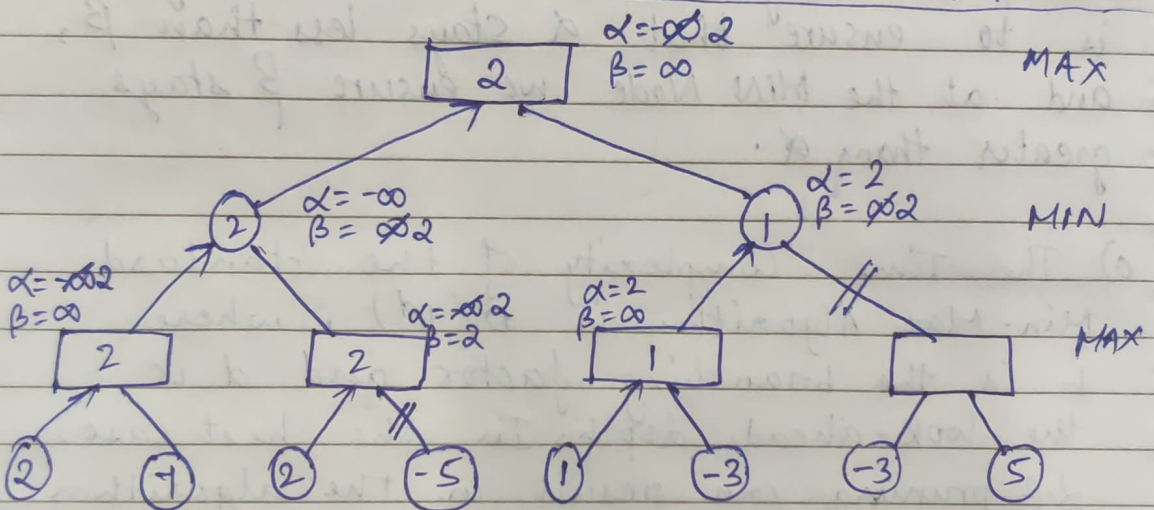 α = -∞ 2
β = ∞
MAX
2
α = -∞
β = ∞ 2
2
α = 2
β = ∞ 2
1
MIN
α = -∞ 2
β = ∞
2
α = -∞ 2
β = 2
2
α = 2
β = ∞
1
MAX
2
-1
2
-5
1
-3
-3
5